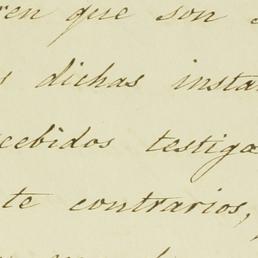 ren que son
s dichas insta
cebidos testiga
te contrarios,